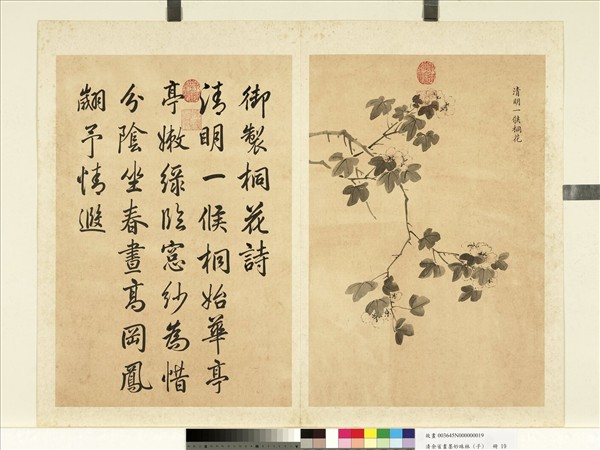 清明一候桐花
御製桐花詩
清明一候桐始華亭
亭嫩綠臨窓紗為惜
分陰坐春晝高岡鳳
翽予情遐
故畫 003645N000000019
清余省畫墨妙珠林（子） 冊 19